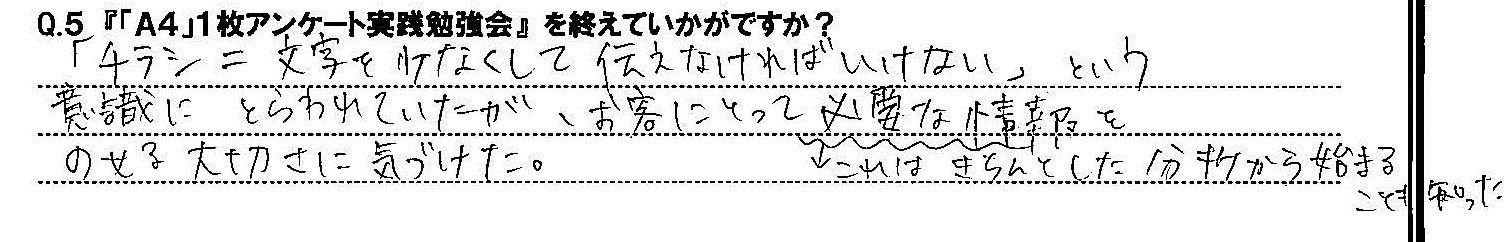 Q.5 『「A4」1枚アンケート実践勉強会』 を終えていかがですか？
「チラシ = 文字を少なくして 伝えなければいけない」 という
意識に とらわれていたが、お客にとって 必要な情報を
のせる 大切さに 気づけた。
↓これは きちんとした 分析から始まる
ことも 知った